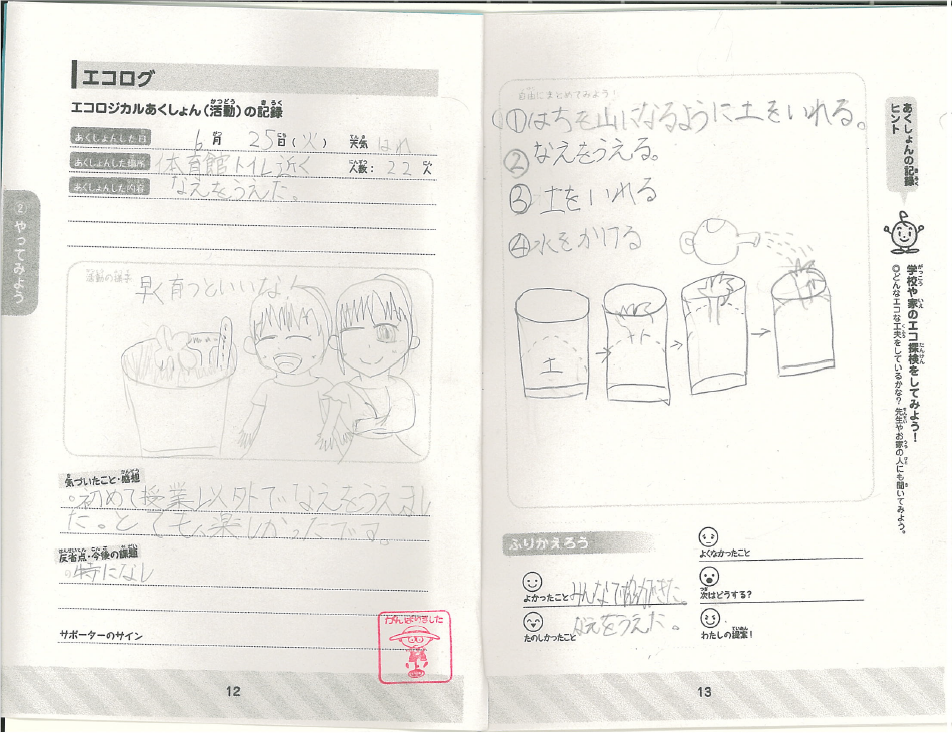 エコログ
エコロジカルあくしょん(活動)の記録
あくしょんした日 6月 25日(火) 天気 はれ
あくしょんした場所 体育館トイレ近く 人数: 22人
あくしょんした内容 なえをうえた。
活動の様子
早く育つといいな!
気づいたこと・感想
○初めて授業以外でなえをうえまし
た。とても、楽しかったです。
反省点・今後の課題
○特になし
サポーターのサイン
がんばりました
12
② やってみよう
自由にまとめてみよう!
①はちを山になるように土をいれる。
②なえをうえる。
③土をいれる
④水をかける
土
土
ふりかえろう
よかったこと みんなで協力できた
たのしかったこと なえをうえた。
よくなかったこと
次はどうする?
わたしの提案!
あくしょんの記録
ヒント
学校や家のエコ探検をしてみよう!
◎どんなエコな工夫をしているかな? 先生やお家の人にも聞いてみよう。
13